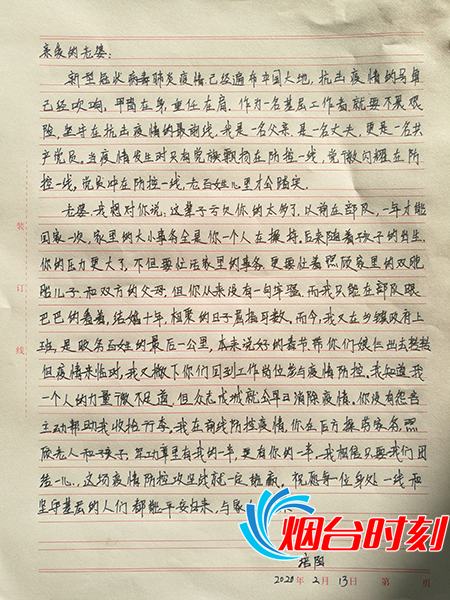 亲爱的老婆:
新型冠状病毒肺炎疫情已经遍布中国大地,抗击疫情的号角
已经吹响,甲胄在身,重任在肩,作为一名基层工作者,就要不畏艰
险,坚守在抗击疫情的最前线。我是一名父亲,是一名丈夫,更是一名共
产党员,当疫情发生时只有党旗飘扬在防控一线,党徽闪耀在防
控一线,党员冲在防控一线,老百姓心里才会踏实。
老婆,我想对你说,这辈子亏欠你的太多了,以前在部队,一年才能
回家一次,家里的大小事务全是你一个人在操持,后来随着孩子的出生,
你的压力更大了,不但要忙活家里的事务,更要忙着照顾家里的双胞
胎儿子和双方的父母,但你从来没有一句牢骚,而我只能在部队眼
巴巴的看着,结婚十年,相聚的日子屈指可数。而今,我又在乡镇政府上
班,是服务百姓的最后一公里,本来说好的春节带你们娘仨出去转转
但疫情来临时,我又撇下你们回到工作岗位参与疫情防控。我知道我
一个人的力量微不足道,但众志成城就会早日消除疫情。你没有怨言
主动帮助我收拾行李。我在前线防控疫情,你在后方操劳家务,照
顾老人和孩子,军功章里有我的一半,更有你的一半。我相信只要我们团
结一心,这场疫情防控攻坚战就一定能赢。祝愿每一位身处一线和
坚守基层的人们都能平安归来,与家
培阳
2020年2月13日 第 页
装
订
线
烟台时刻